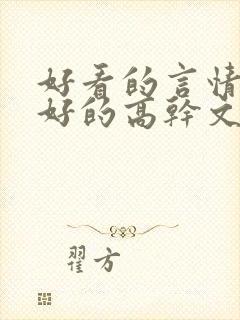 好看的言情
好的高幹文
翟方